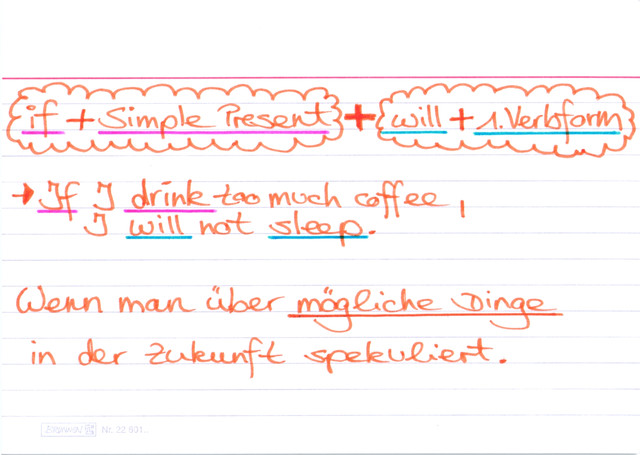 if + Simple Present + will + 1. Verbform
→ If I drink too much coffee,
I will not sleep.
Wenn man über mögliche Dinge
in der Zukunft spekuliert.
BRUNNEN Nr. 22 801